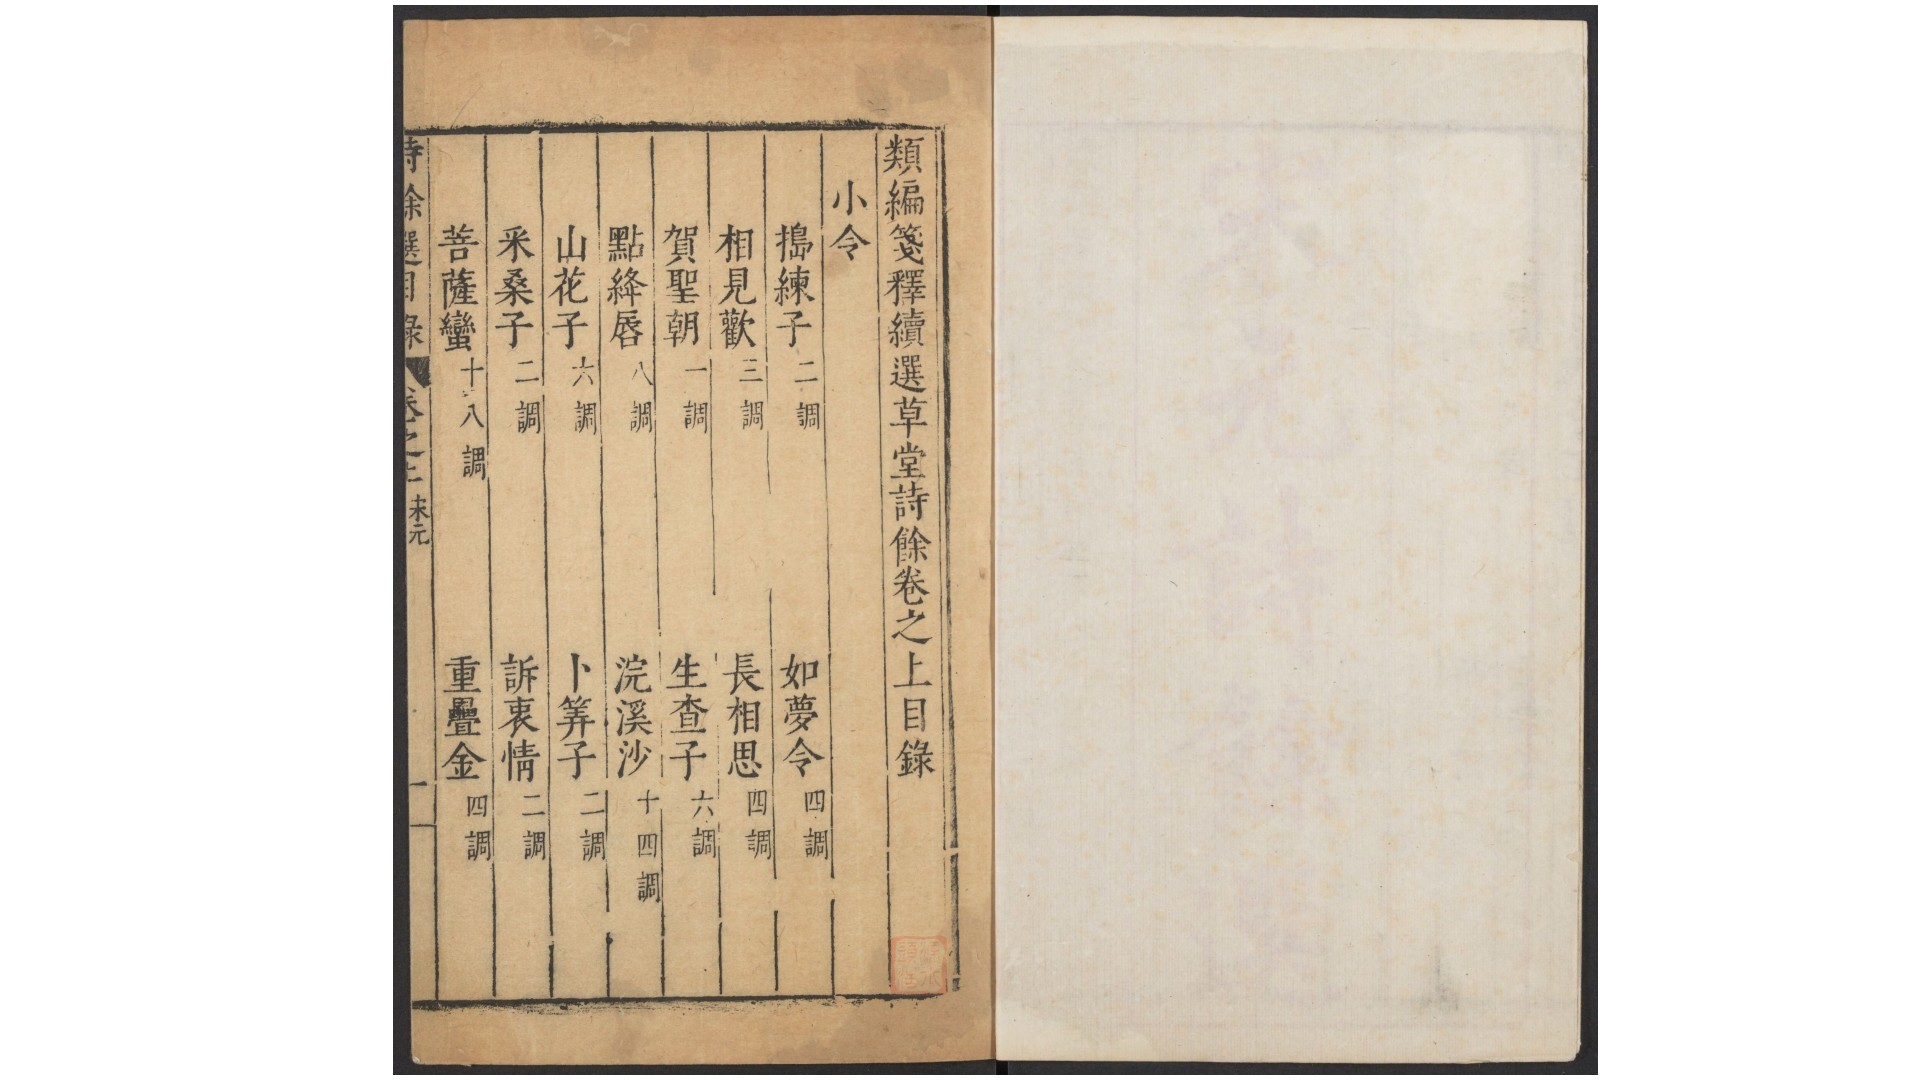 類編箋釋續選草堂詩餘卷之上目錄
小令
搗練子二調 如夢令四調
相見歡三調 長相思四調
賀聖朝一調 生查子六調
點絳唇八調 浣溪沙十四調
山花子六調 卜筭子二調
采桑子二調 訴衷情二調
菩薩蠻十八調 重疊金四調
詩餘選目錄 卷之上 一